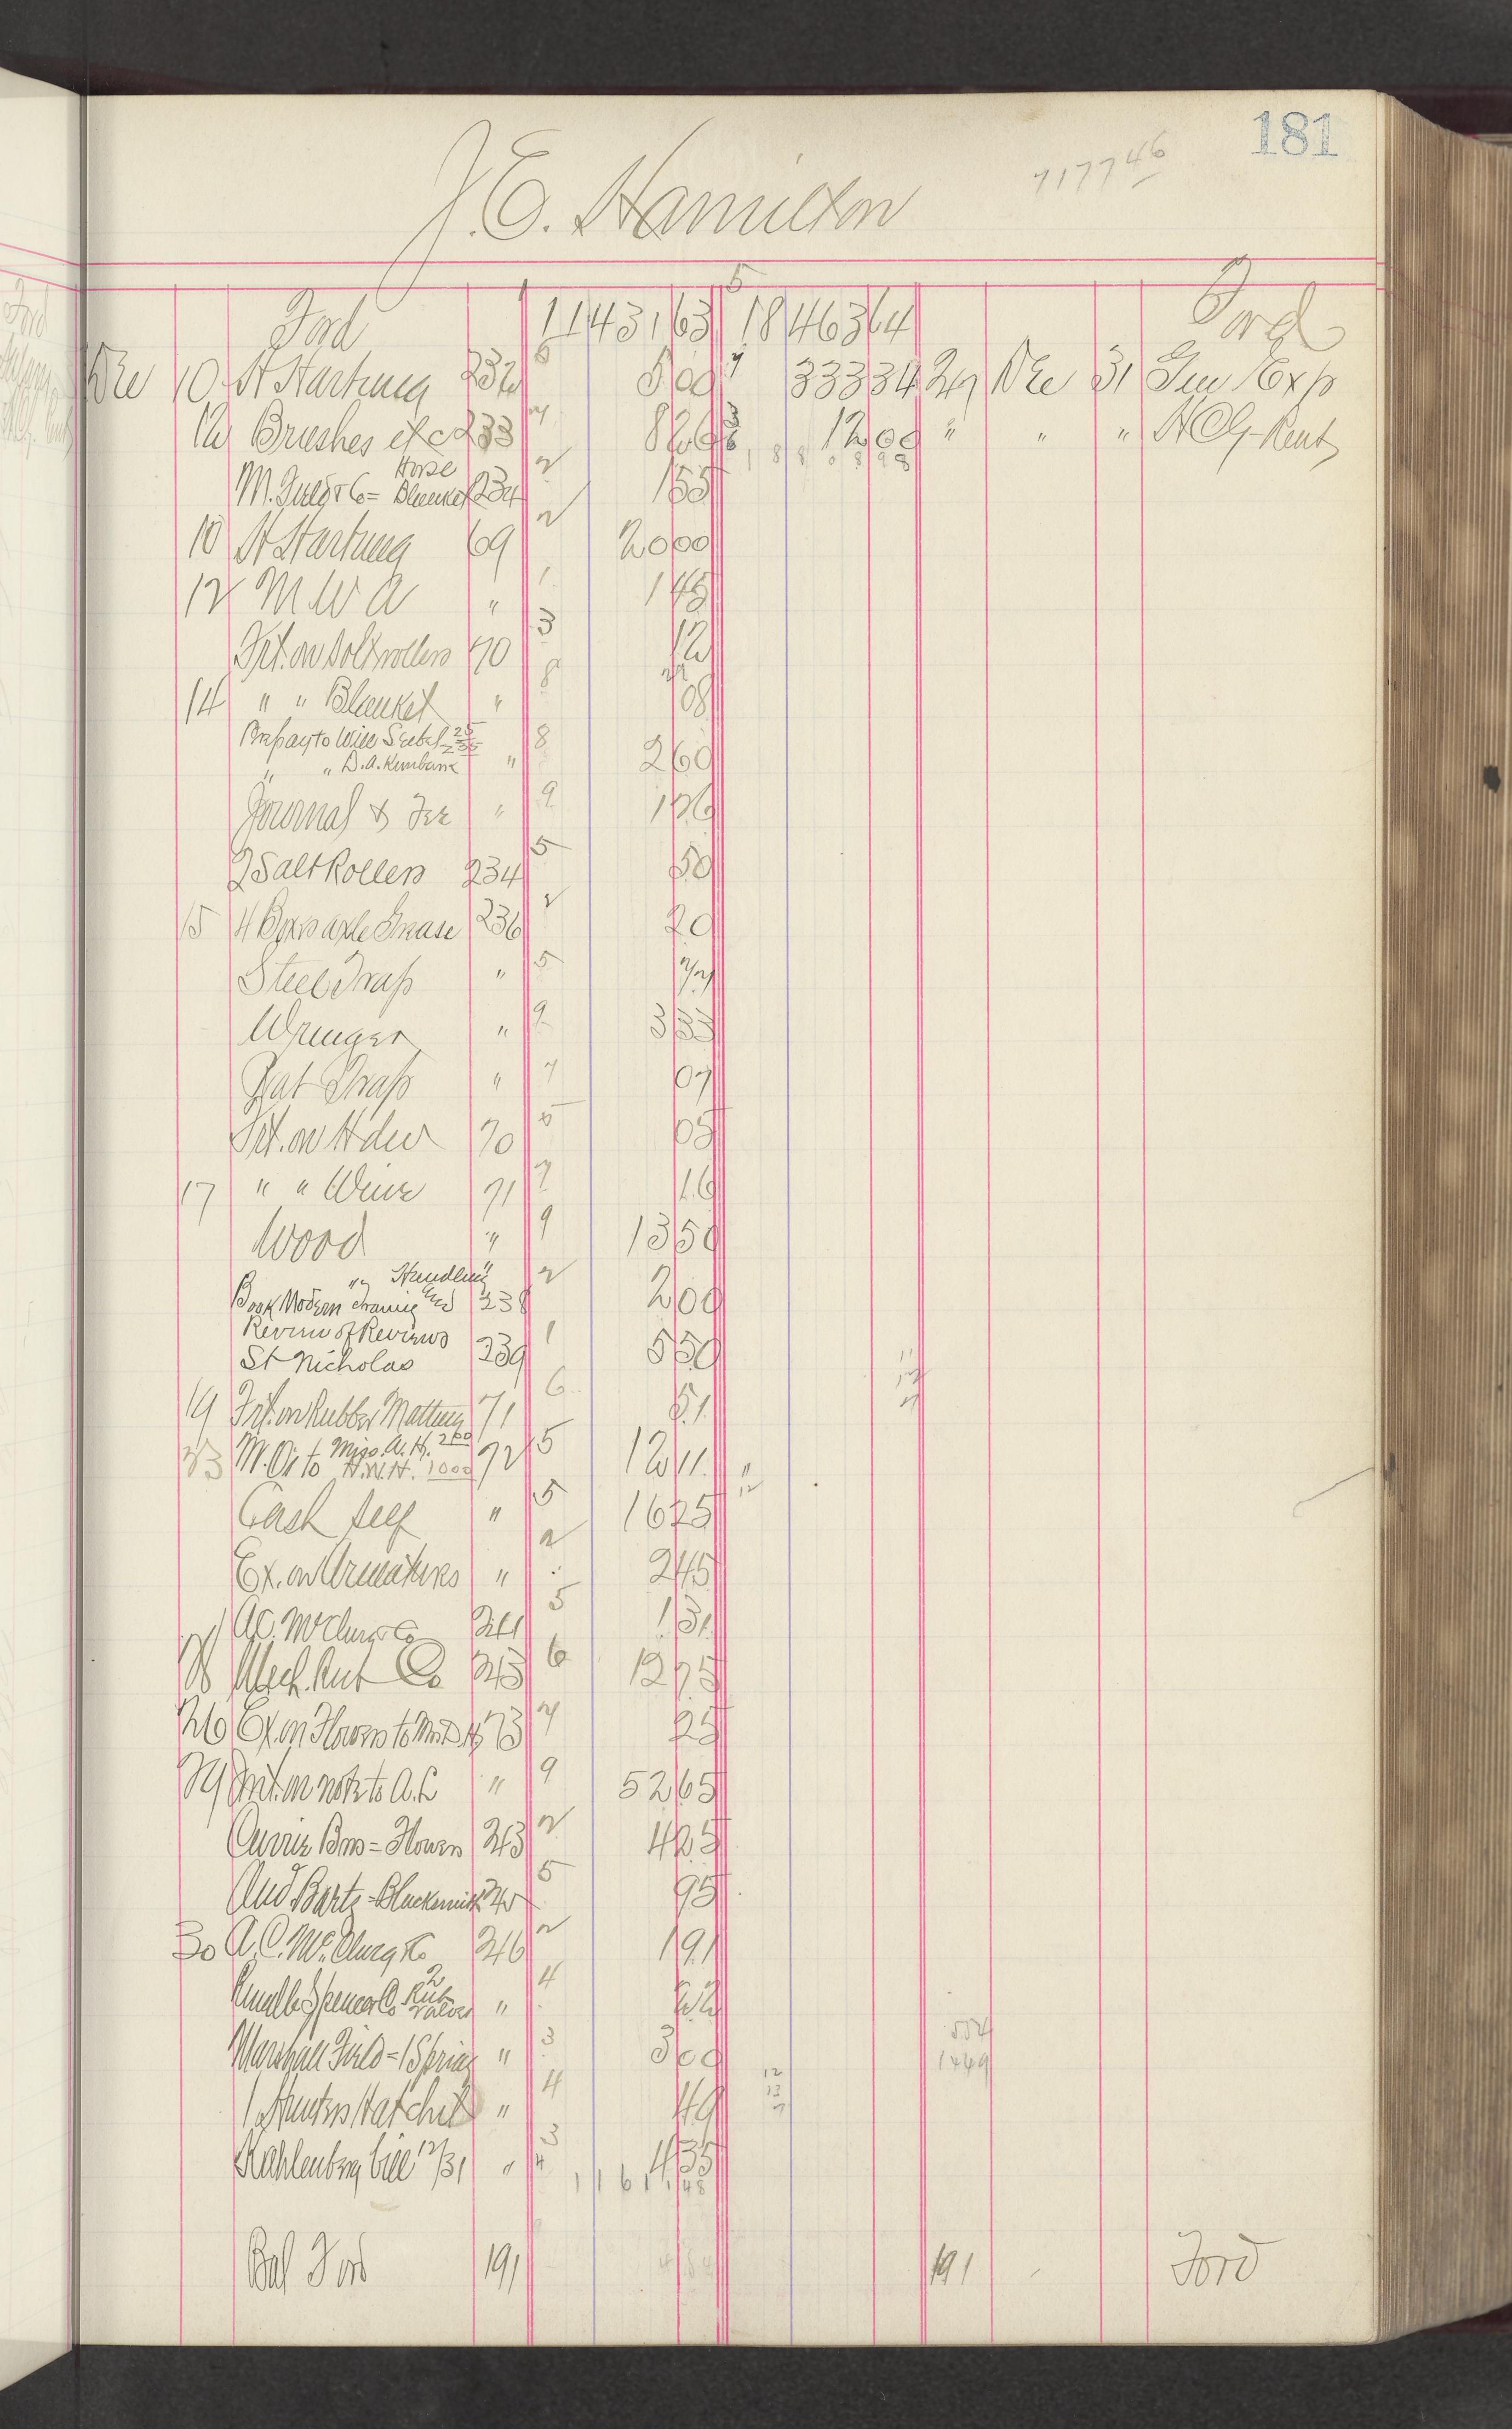 181
7177 46
J. E. Hamilton
Ford 11431 63 18463 64 Ford
Dec 10 H Hartung 232 5 00 333 34 29 Dec 31 Gen Exp
12 Brushes etc 233 8 26 12 00 " " " HCG-Rent
Horse
M. Field & Co = Blanket 234 1 55
10 H Hartung 69 20 00
12 M W A " 1 45
Frt. on Salt rollers 70 12
14 " " Blanket " 08
Prepay to Will Seebel 25
" " D. A. Kimbark 2 35 " 2 60
Journal & Fee "
2 Salt Rollers 234 50
15 4 Boxes axle Grease 236 20
Steel Trap " 77
Wringer " 3 33
Rat Trap " 07
Frt. on Hdw 70 05
17 " " Wine 71 16
Wood " 13 50
" Handling
Book Modern Framing and 238 2 00
Review of Reviews
St Nicholas 239 5 50
19 Frt. on Rubber Matting 71 51
23 M. O. to Miss. A. H. 2 00
H. W. H. 10 00 72 12 11
Cash self " 16 75
Ex. on Armatures " 2 45
A. C. McClurg Co 241 1 31
Mech. Rub Co 243 12 75
26 Ex. on Flowers to Mrs D H 73 25
29 Int. on note to A. L " 52 65
Currie Bros = Flowers 243
Aud Bartz = Blacksmith 95
30 A. C. McClurg & Co 246 1 91
2
Rub
Valves " 22
Marshall Field = 1 Spring " 3 00
1 Hunters Hatchet " 49
Kahlenberg bill 12/31 " 4 35
11 6 1 1 48
Bal Ford 191 191 Ford